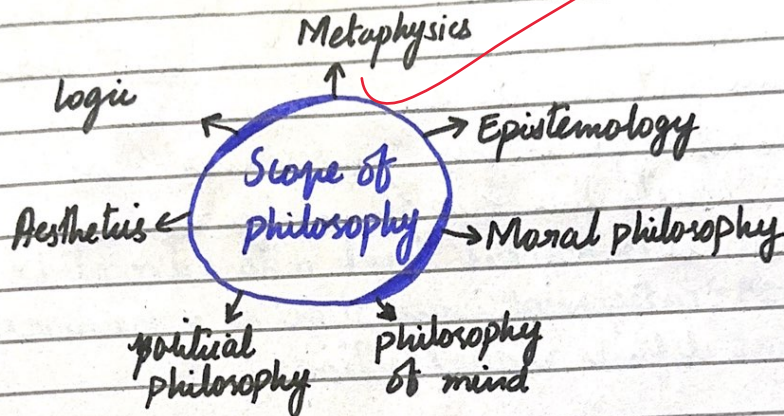 Metaphysics
Logic
Epistemology
Scope of
philosophy
Aesthetics
Moral philosophy
political
philosophy
philosophy
of mind